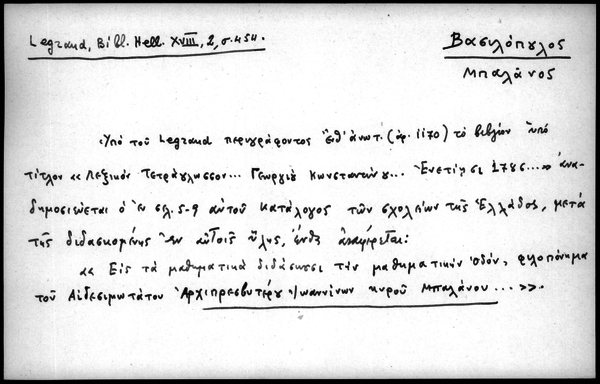 Legrand, Bibl. Hell. XVIII, 2, σ. 454.
Βασιλόπουλος
Μπαλάνος
Ὑπό τοῦ Legrand περιγράφοντος ἔνθ' ἀνωτ. (ἀρ. 1170) τό βιβλίον ὑπό
τίτλον «Λεξικόν Τετράγλωσσον... Γεωργίου Κωνσταντίνου... Ἐνετίῃσι 1786...» ἀνα-
δημοσιεύεται ὁ ἐν σελ. 5-9 αὐτοῦ κατάλογος τῶν σχολείων τῆς Ἑλλάδος, μετά
τῆς διδασκομένης ἐν αὐτοῖς ὕλης, ἔνθα ἀναφέρεται:
«Εἰς τά μαθηματικά διδάσκουσι τήν μαθηματικήν Ὁδόν, φιλοπόνημα
τοῦ Αἰδεσιμωτάτου Ἀρχιπρεσβυτέρου Ἰωαννίνων κυροῦ Μπαλάνου...».